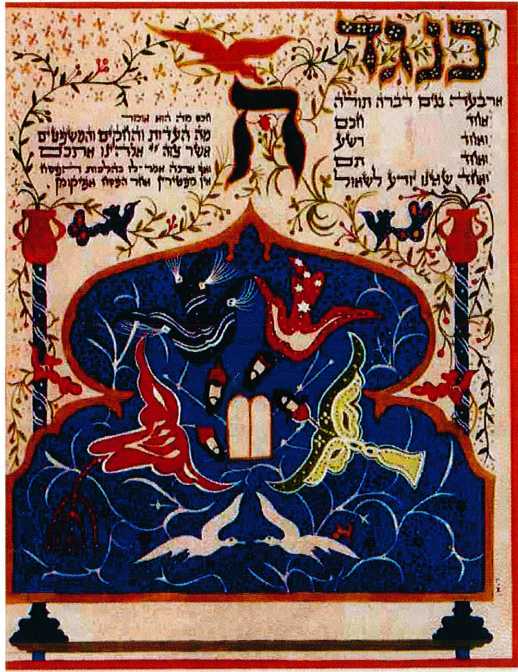 כנגד
ארבעה בנים דברה תורה
אחד חכם
ואחד רשע
ואחד תם
ואחד שאינו יודע לשאול
חכם מה הוא אומר
מה העדות והחקים והמשפטים
אשר צוה יי אלהינו אתכם
אף אתה אמר לו כהלכות הפסח
אין מפטירין אחר הפסח אפיקומן